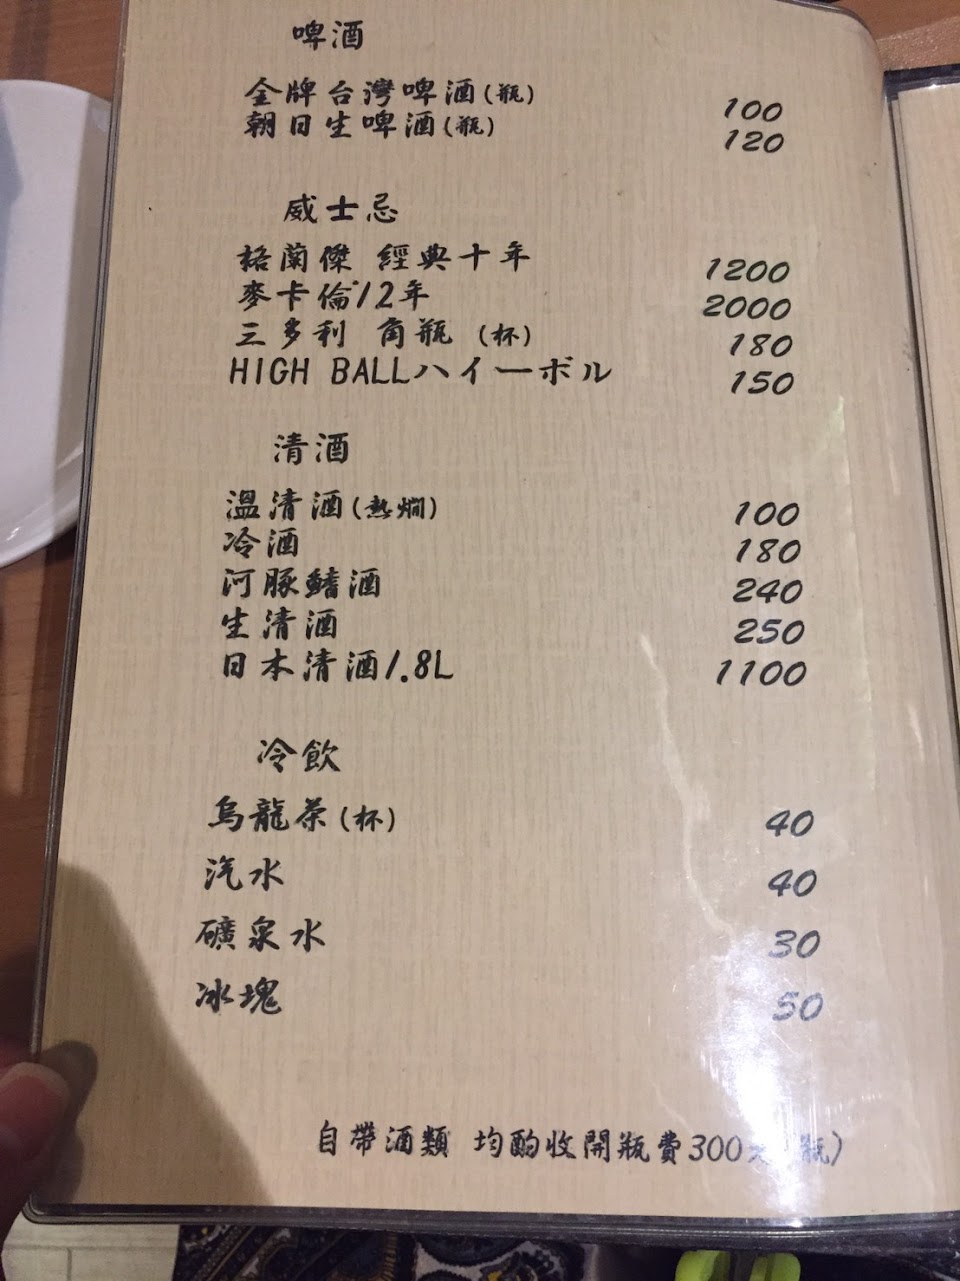 啤酒
金牌台灣啤酒(瓶) 100
朝日生啤酒(瓶) 120
威士忌
格蘭傑 經典十年 1200
麥卡倫12年 2000
三多利 角瓶 (杯) 180
HIGH BALLハイーボル 150
清酒
溫清酒(熱燗) 100
冷酒 180
河豚鰭酒 240
生清酒 250
日本清酒1.8L 1100
冷飲
烏龍茶(杯) 40
汽水 40
礦泉水 30
冰塊 50
自帶酒類 均酌收開瓶費300元 瓶)